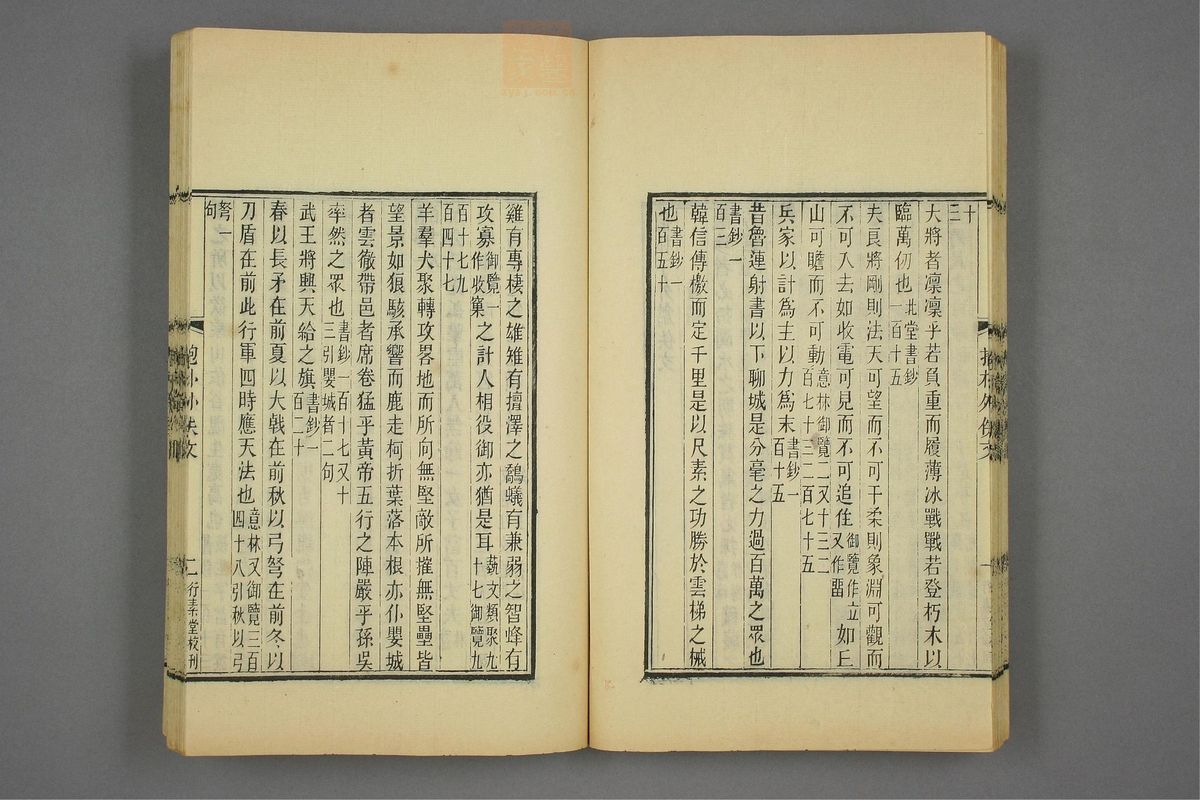 十三
大將者凜凜乎若負重而履薄冰戰戰若登朽木以
臨萬仞也北堂書鈔一百十五
夫良將剛則法天可望而不可干柔則象淵可觀而
不可入去如收電可見而不可追住御覽作立又作畱如丘
山可瞻而不可動意林御覽二又十三二百七十三二百七十五
兵家以計為主以力為末書鈔一百十五
昔魯連射書以下聊城是分毫之力過百萬之眾也
書鈔一百三
韓信傳檄而定千里是以尺素之功勝於雲梯之械
也書鈔一百五十
雞有專棲之雄雉有擅澤之鷮蟻有兼弱之智蜂有
攻寡御覽一作收窠之計人相役御亦猶是耳藝文類聚九十七御覽九
百十七九百四十七
羊羣犬聚轉攻畧地而所向無堅敵所摧無堅壘皆
望景如狼駭承響而鹿走柯折葉落本根亦仆嬰城
者雲徹帶邑者席卷猛乎黃帝五行之陣嚴乎孫吳
率然之眾也書鈔一百十七又十三引嬰城者二句
武王將興天給之旗書鈔一百二十
春以長矛在前夏以大戟在前秋以弓弩在前冬以
刀盾在前此行軍四時應天法也意林又御覽三百四十八引秋以弓
弩一句
二
行素堂校刊